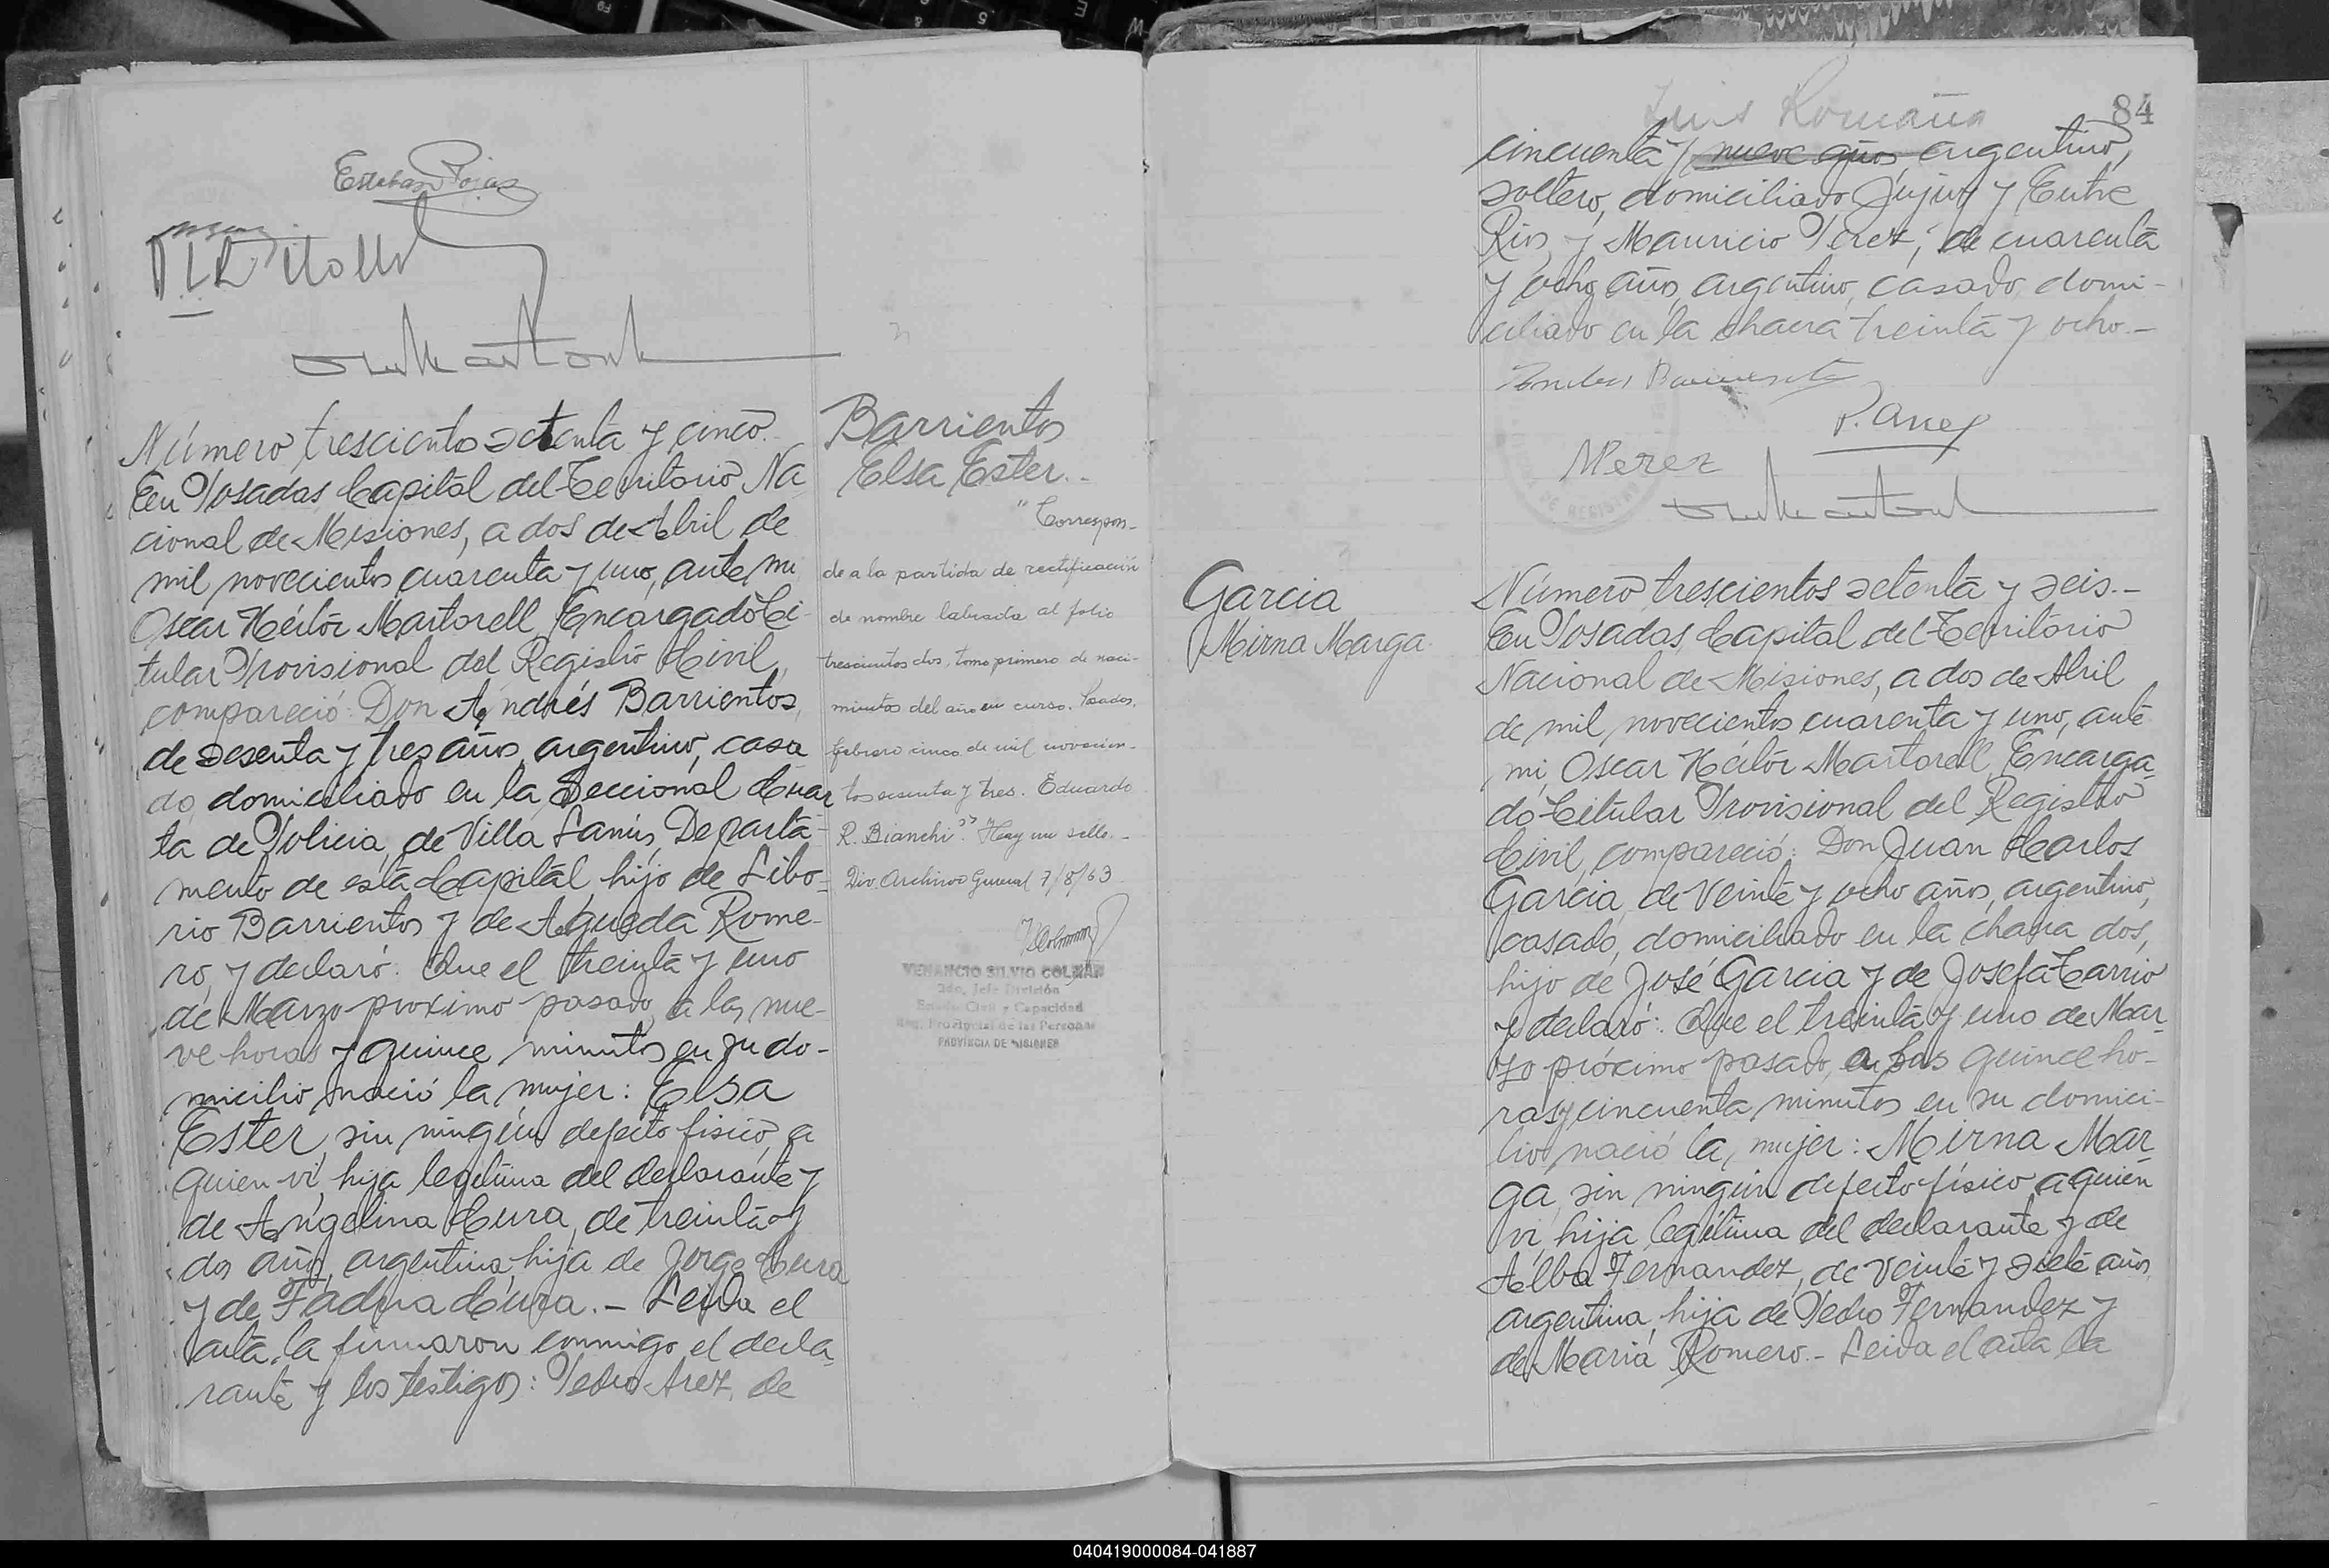 Esteban Rojas
Número trescientos setenta y cinco.
En Posadas, Capital del Territorio Na
cional de Misiones, a dos de Abril de
mil novecientos cuarenta y uno, ante mi
Oscar Héctor Martorell Encargado Ti-
tular Provisional del Registro Civil,
compareció: Don Andrés Barrientos,
de sesenta y tres años, argentino, casa
do, domiciliado en la Seccional Cuar
ta de Policia, de Villa Lanús, Departa-
mento de esta Capital, hijo de Libo-
rio Barrientos y de Agueda Rome-
ro, y declaró: Que el treinta y uno
de Marzo proximo pasado, a las nue-
ve horas y quince minutos en su do-
micilio nació la mujer: Elsa
Ester, sin ningún defecto fisico, a
quien vi, hija legitima del declarante y
de Angelina Cura, de treinta y
dos años, argentina, hija de Jorge Cura
y de Fadna Cura. - Leida el
acta, la firmaron conmigo el decla-
rante y los testigos: Pedro Arez, de
Barrientos
Elsa Ester.-
"Correspon-
de a la partida de rectificación
de nombre labrada al folio
trescientos dos, tomo primero de naci-
mientos del año en curso. Posadas,
febrero cinco de mil novecien-
tos sesenta y tres. Eduardo
R. Bianchi". "Hay un sello.-
Div. Archivo General 7/8/63
VENANCIO SILVIO COLMAN
2do. Jefe División
Estado Civil y Capacidad
Reg. Provincial de las Personas
PROVINCIA DE MISIONES
Luis Romaña
84
cincuenta y nueve años, argentino,
soltero, domiciliado Jujuy y Entre
Rios, y Mauricio Perez, de cuarenta
y ocho años, argentino, casado, domi-
ciliado en la chacra treinta y ocho.-
P. Arrez
MPerez
DE REGISTRO
Garcia
Mirna Marga.
Número trescientos setenta y seis.-
En Posadas, Capital del Territorio
Nacional de Misiones, a dos de Abril
de mil novecientos cuarenta y uno, ante
mi, Oscar Héctor Martorell, Encarga
do Titular Provisional del Registro
Civil, compareció: Don Juan Carlos
Garcia, de veinte y ocho años, argentino,
casado, domiciliado en la chacra dos,
hijo de José Garcia y de Josefa Tarrio
y declaró: Que el treinta y uno de Mar-
zo próximo pasado, a las quince ho-
ras y cincuenta minutos en su domici-
lio nació la mujer: Mirna Mar
ga, sin ningún defecto físico a quien
vi, hija legitima del declarante y de
Elba Fernandez, de veinte y siete años,
argentina, hija de Pedro Fernandez y
de Maria Romero.- Leida el acta la
040419000084-041887